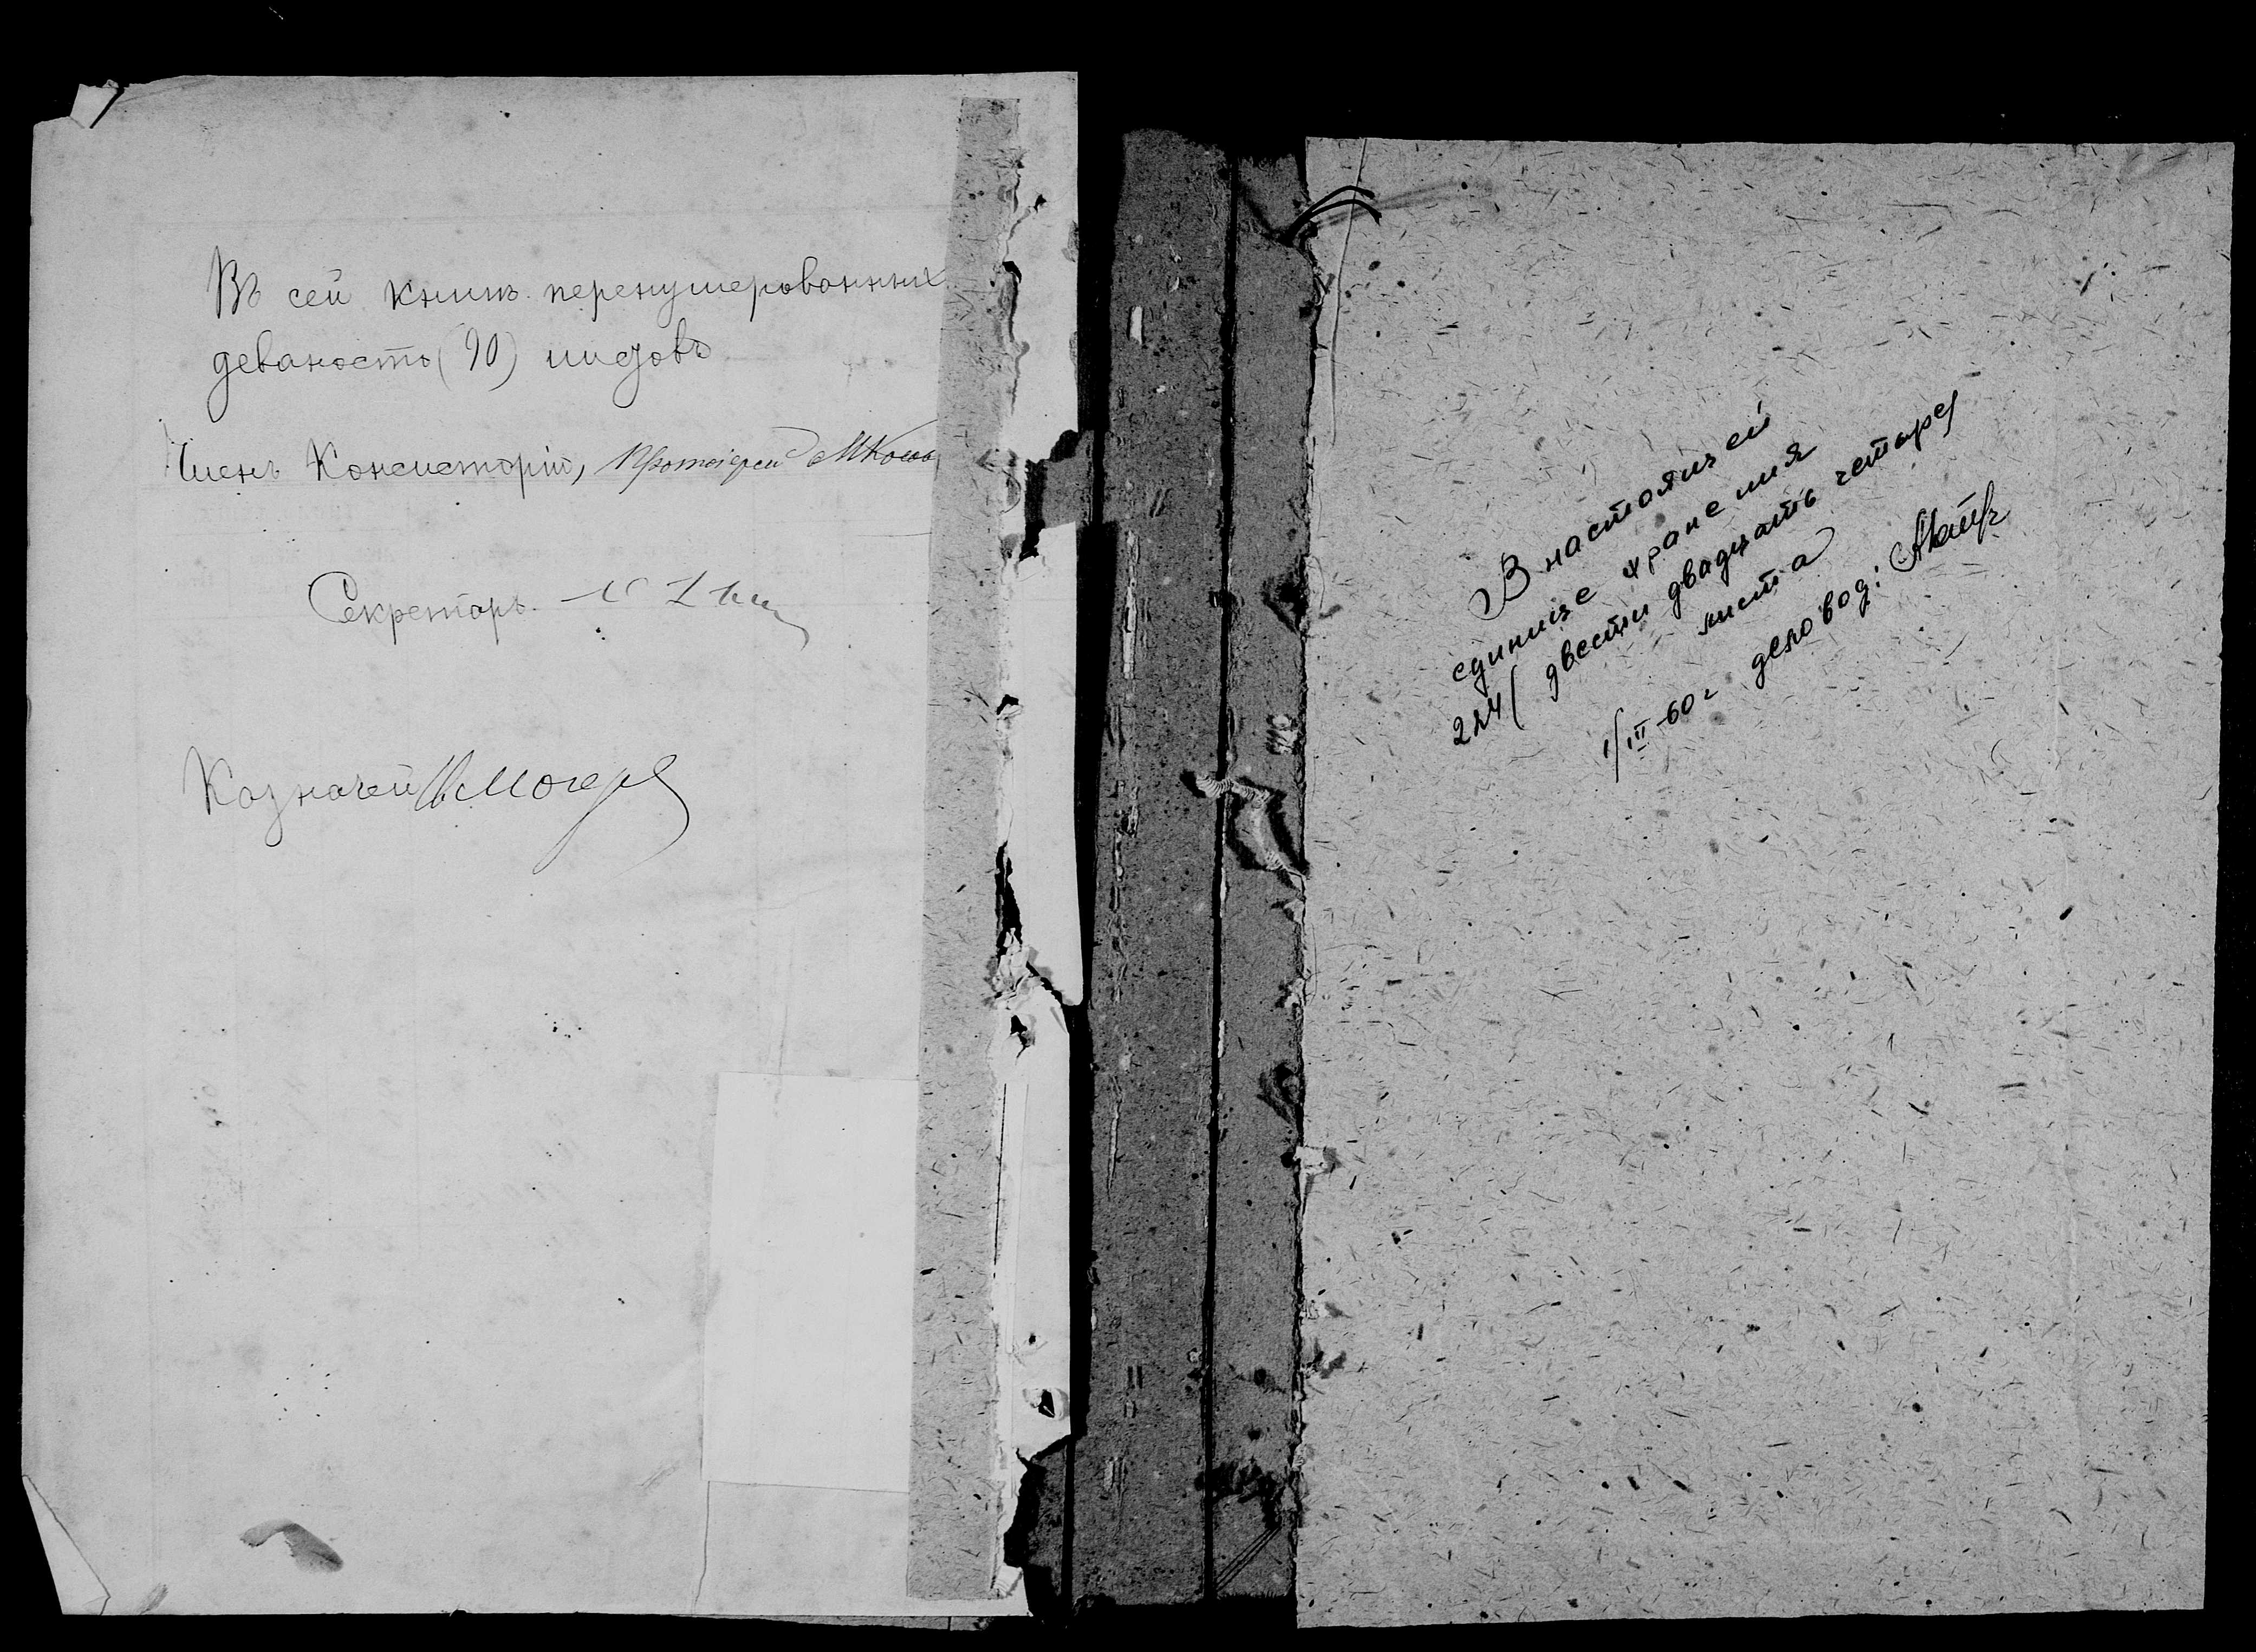 Въ сей книгѣ перенумерованныхъ
деваносто (90) листовъ
Членъ Консисторіи, Протоіерей
Секретарь
Казначей
В настоящей
единице хранения
224 ( двести двадцать четыре)
листа
1/III-60 г деловод: